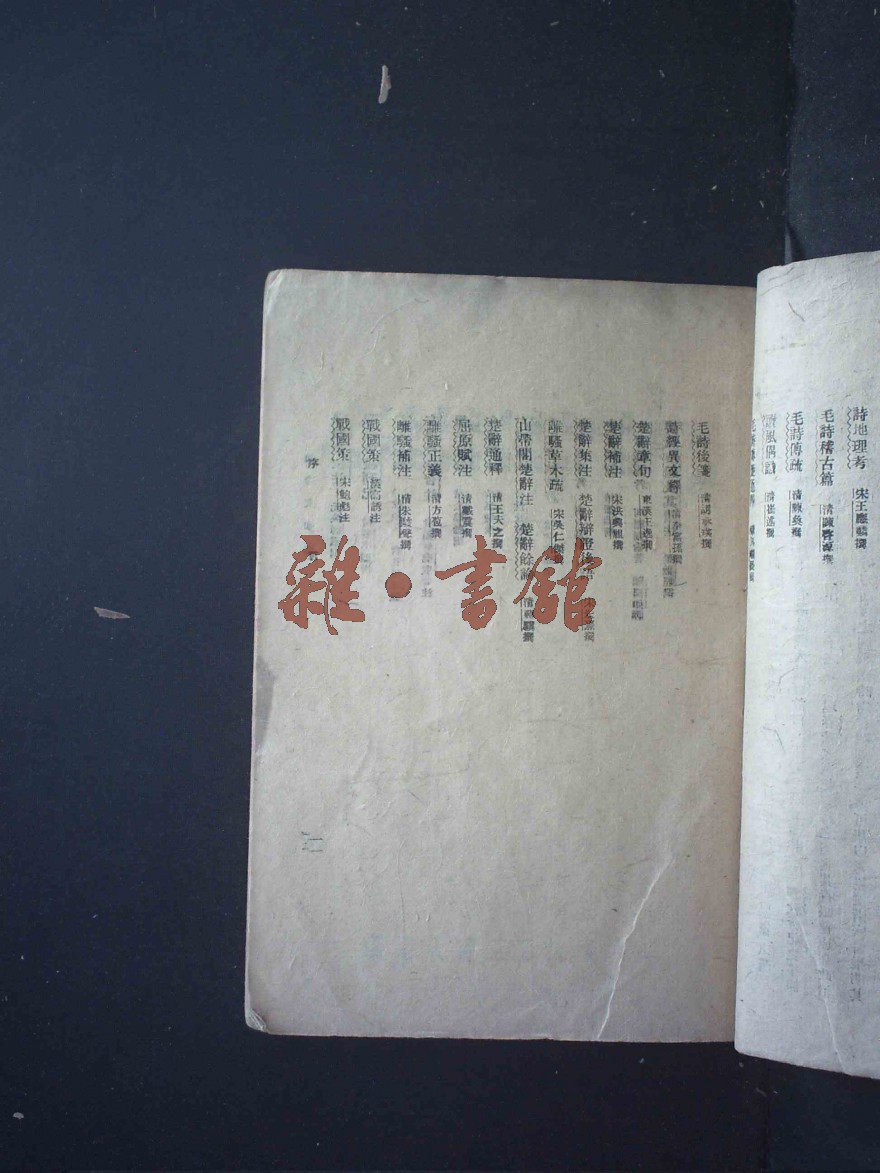 詩地理考 宋王應麟撰
毛詩稽古篇 清陳啓源撰
毛詩傳疏 清陳奐撰
讀風偶識 清崔述撰
毛詩後箋 清胡承珙撰
詩經異文釋 清李富孫撰
楚辭章句 東漢王逸撰
楚辭補注 宋洪興祖撰
楚辭集注 楚辭辯證
離騷草木疏 宋吳仁傑撰
山帶閣楚辭注 楚辭餘論 清蔣驥撰
楚辭通釋 清王夫之撰
屈原賦注 清戴震撰
離騷正義 清方苞撰
離騷補注 清朱駿聲撰
戰國策 漢高誘注
戰國策 宋鮑彪注
序
雜·書館